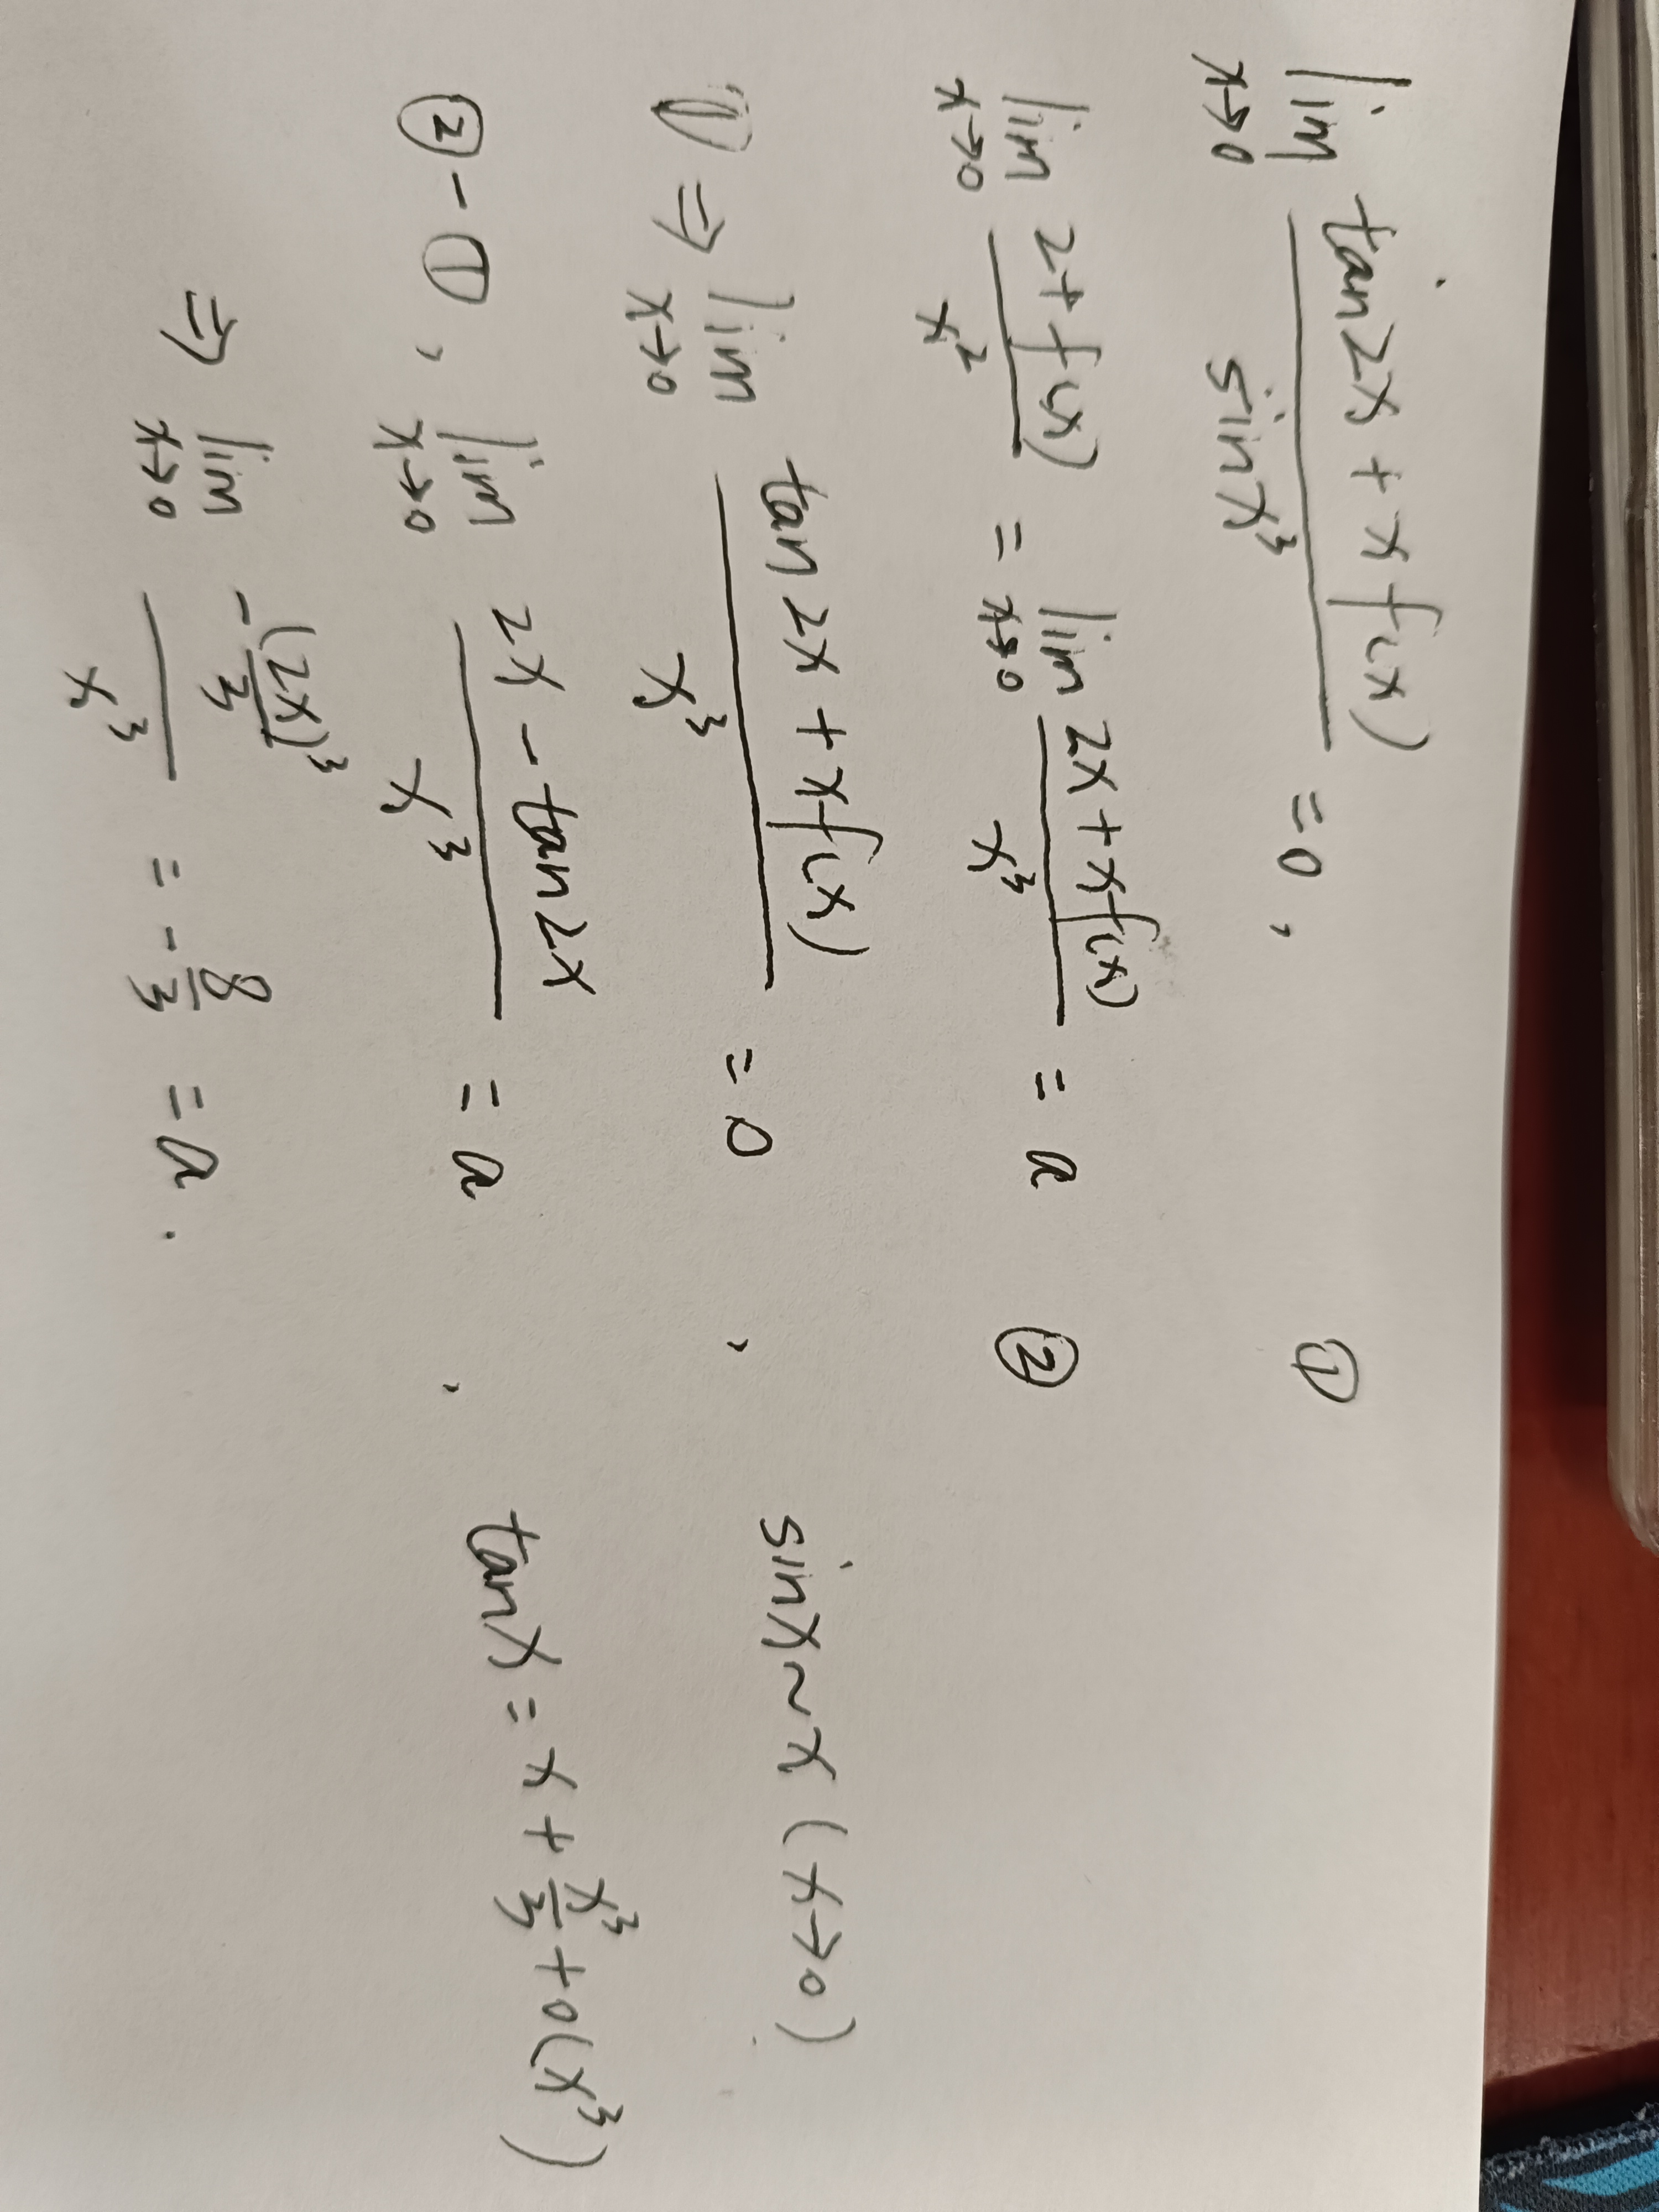 lim x→0 (tan2x + xf(x))/(sinx³) = 0, ①
lim x→0 (2+f(x))/x² = lim x→0 (2x+xf(x))/x³ = a ②
① ⇒ lim x→0 (tan2x + xf(x))/x³ = 0, sinx~x (x→0)
②-①, lim x→0 (2x - tan2x)/x³ = a, tanx = x + x³/3 + o(x³)
⇒ lim x→0 (-(2x)³/3)/x³ = -8/3 = a.